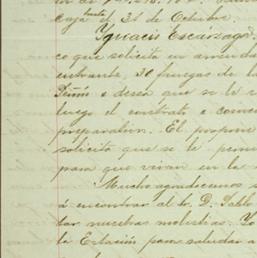 Caja hasta el 31 de Octubre.
Ygnacio Escarzaga,
co que solicita en arrenda
entrante, 30 fanegas de la
y desea que se le re
luego el contrato e comen
preparation. El propone
solicita que se le permi
para que vivan en la
Mucho agradecemos s
á encontrar al Sr. D. Pablo
dar nuestras molestias. Yo
la Estación para saludar a